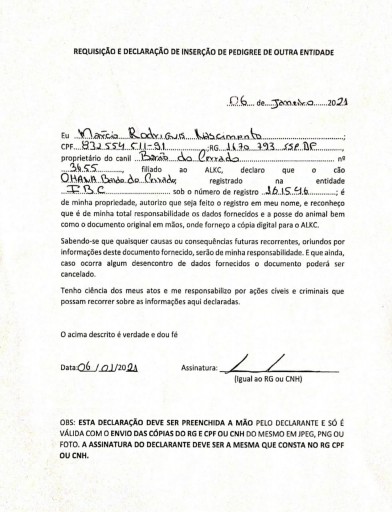 REQUISIÇÃO E DECLARAÇÃO DE INSERÇÃO DE PEDIGREE DE OUTRA ENTIDADE
06 de Janeiro 2021
Eu Marcio Rodrigues Nascimento;
CPF 832 554 511-91 RG 1670 793 SSP DF,
proprietário do canil Barão do Cerrado nº
3655, filiado ao ALKC, declaro que o cão
OHANA Barão do Cerrado, registrado na entidade
IBC sob o número de registro 16.15.46; é
de minha propriedade, autorizo que seja feito o registro em meu nome, e reconheço
que é de minha total responsabilidade os dados fornecidos e a posse do animal bem
como o documento original em mãos, onde forneço a cópia digital para o ALKC.
Sabendo-se que quaisquer causas ou consequências futuras recorrentes, oriundos por
informações deste documento fornecido, serão de minha responsabilidade. E que ainda,
caso ocorra algum desencontro de dados fornecidos o documento poderá ser
cancelado.
Tenho ciência dos meus atos e me responsabilizo por ações cíveis e criminais que
possam recorrer sobre as informações aqui declaradas.
O acima descrito é verdade e dou fé
Data: 06/01/2021 Assinatura:
(Igual ao RG ou CNH)
OBS: ESTA DECLARAÇÃO DEVE SER PREENCHIDA A MÃO PELO DECLARANTE E SÓ É
VÁLIDA COM O ENVIO DAS CÓPIAS DO RG E CPF OU CNH DO MESMO EM JPEG, PNG OU
FOTO. A ASSINATURA DO DECLARANTE DEVE SER A MESMA QUE CONSTA NO RG CPF
OU CNH.